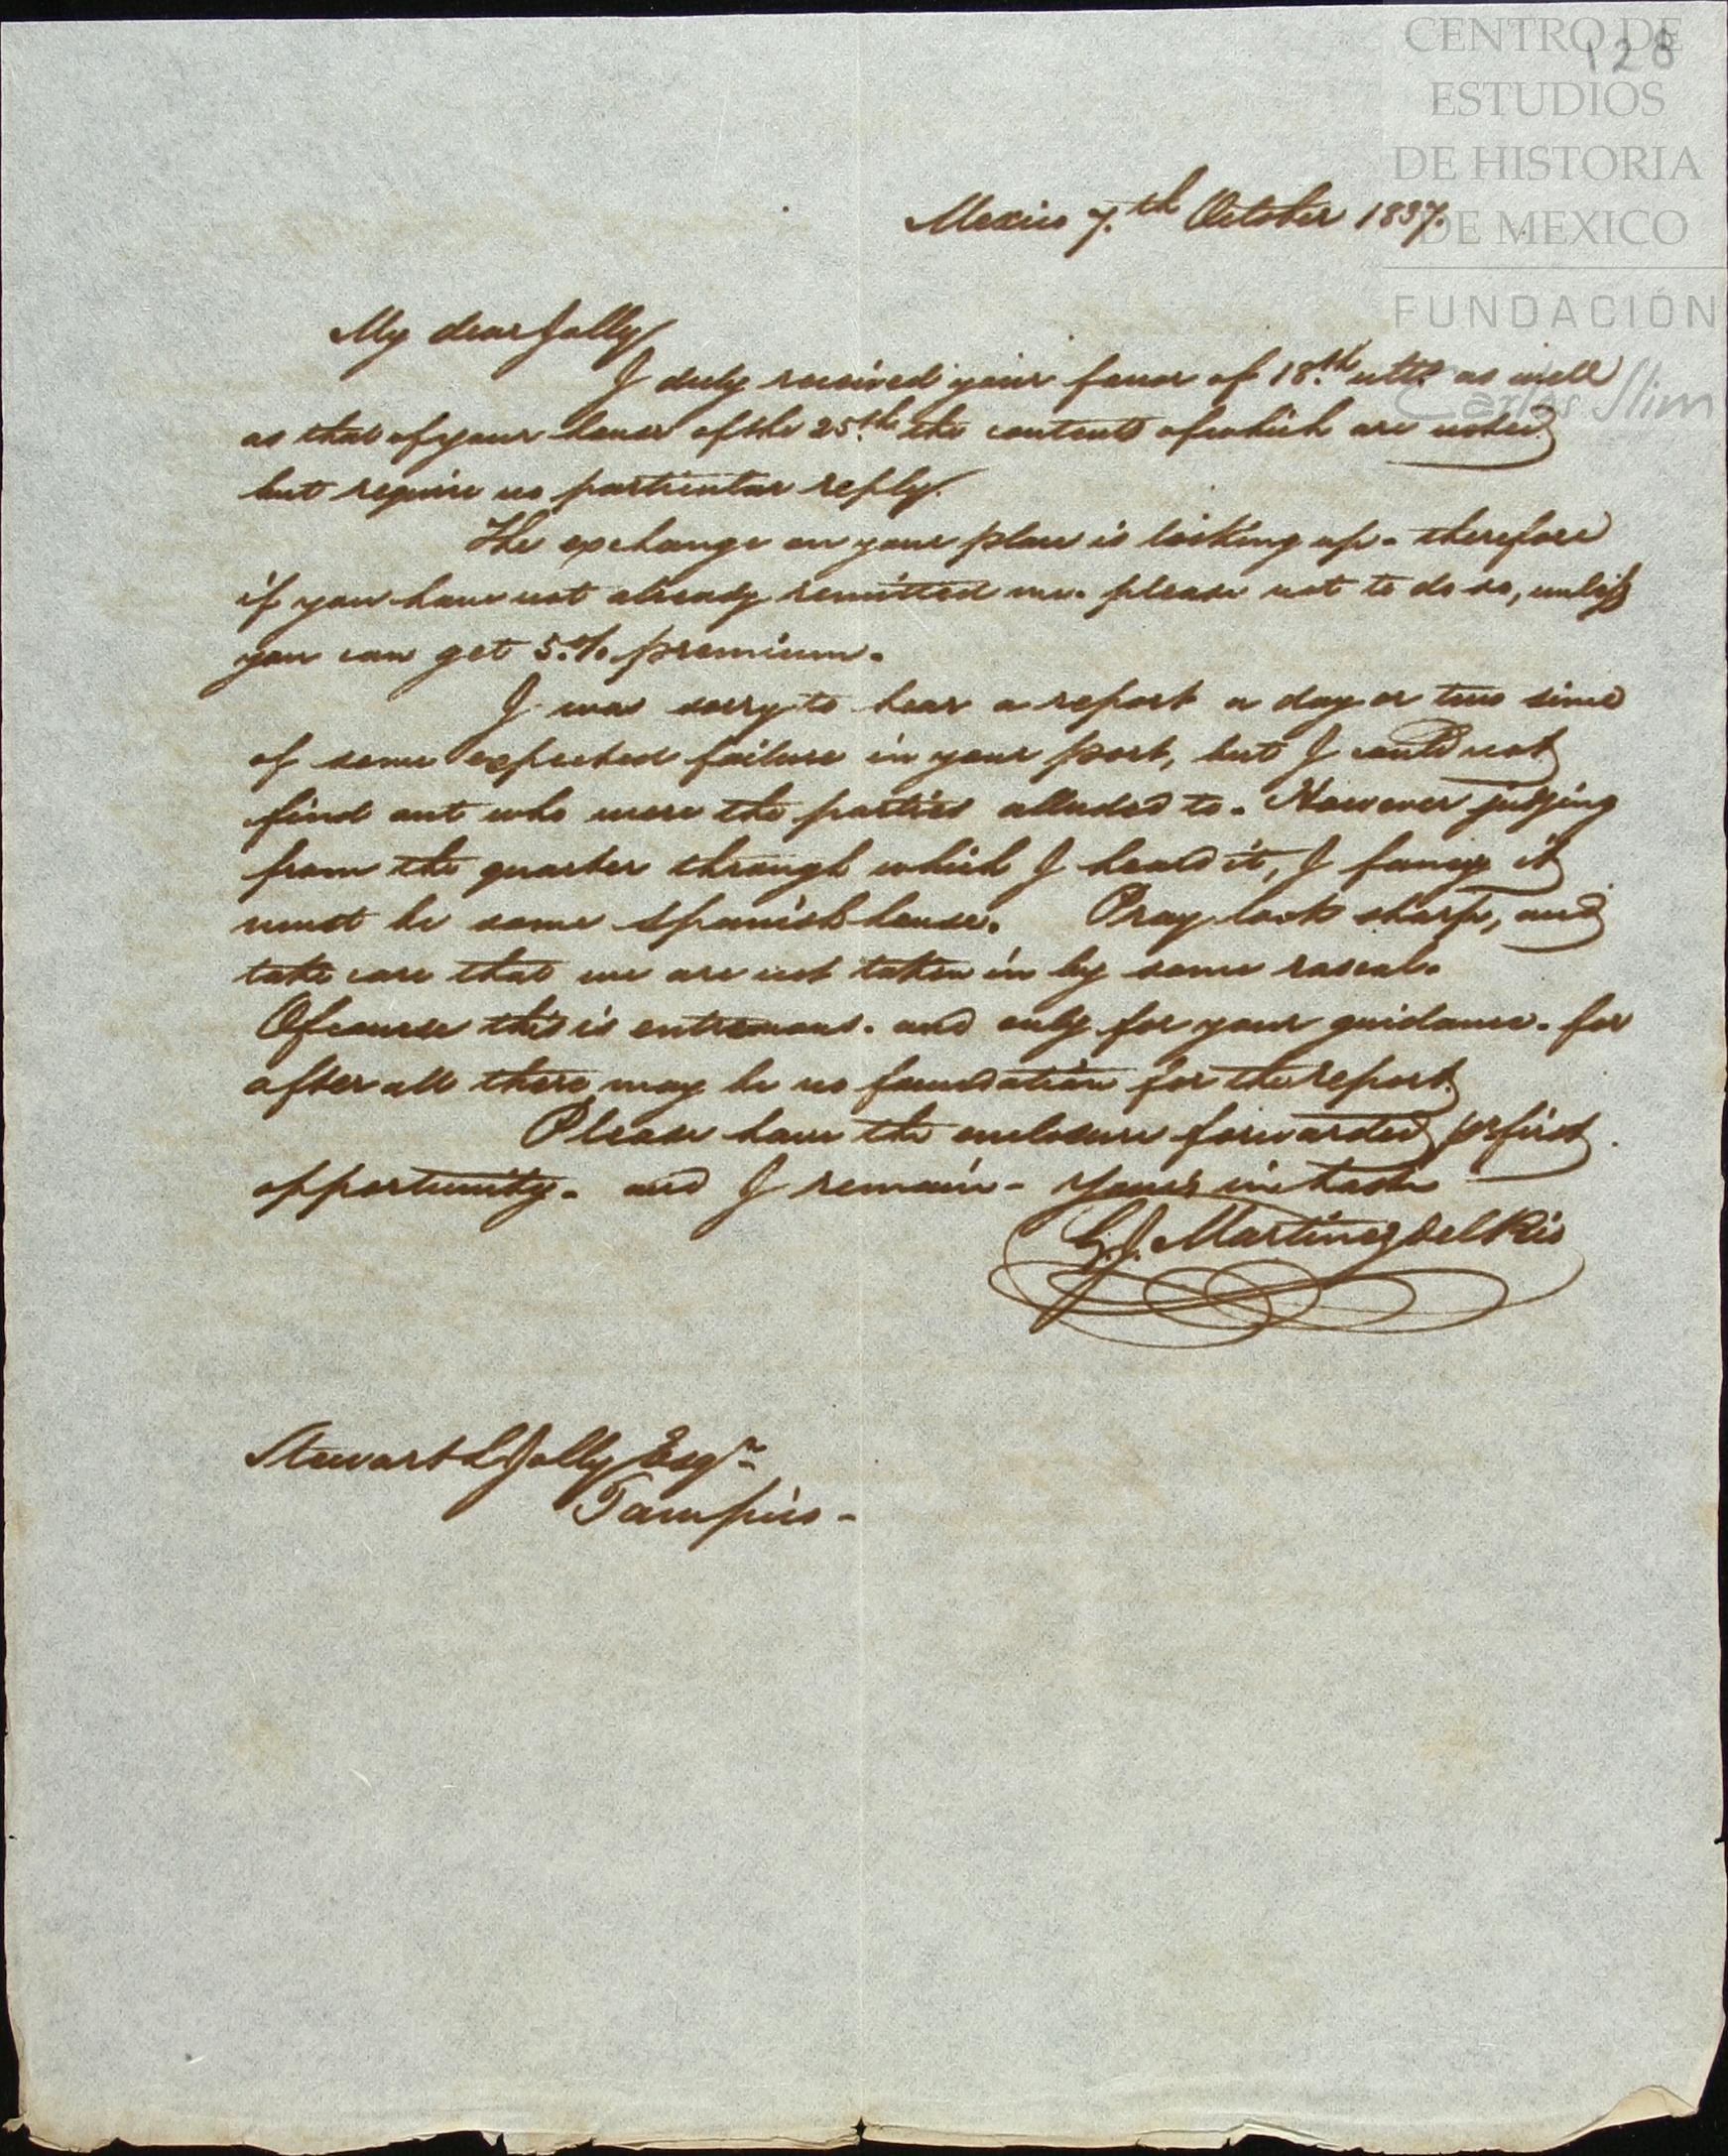 CENTRO DE
ESTUDIOS
DE HISTORIA
DE MEXICO
FUNDACIÓN
Carlos Slim
128
Mexico 7.th October 1837.
My dear Jolly
I duly received your favor of 18.th ulto. as well
as that of your house of the 25.th the contents of which are noted
but require no particular reply.
The exchange on your place is looking up. therefore
if you have not already remitted me. please not to do so, unless
you can get 5.% premium.
I was sorry to hear a report a day or two since
of some expected failure in your port, but I could not
find out who were the parties alluded to. However judging
from the quarter through which I heard it, I fancy it
must be some Spanish house. Pray look sharp, and
take care that we are not taken in by some rascal.
Of course this is entre nous. and only for your guidance. for
after all there may be no foundation for the report.
Please have the enclosure forwarded pr first
opportunity. and I remain - Yours in haste
G. J. Martinez del Rio
Stewart L Jolly Esqre
Tampico -